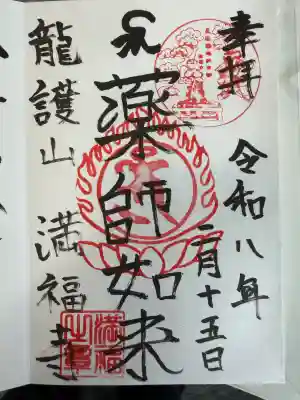 奉拝
令和八年
二月十五日
薬師如来
龍護山 満福寺
満福
寺章